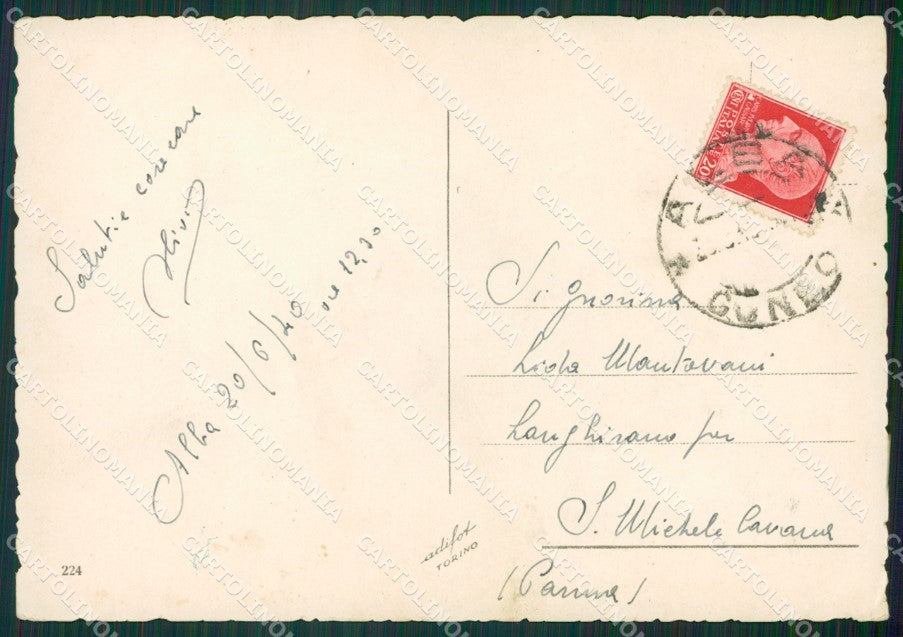 Saluti e cose care
Alba 20/6/40 ore 12,30
224
adifot
TORINO
Signorina
Lida Mantovani
Langhirano per
S. Michele Cavana
(Parma)
POSTE ITALIANE
CENT 20
CUNEO
CARTOLINOMANIA